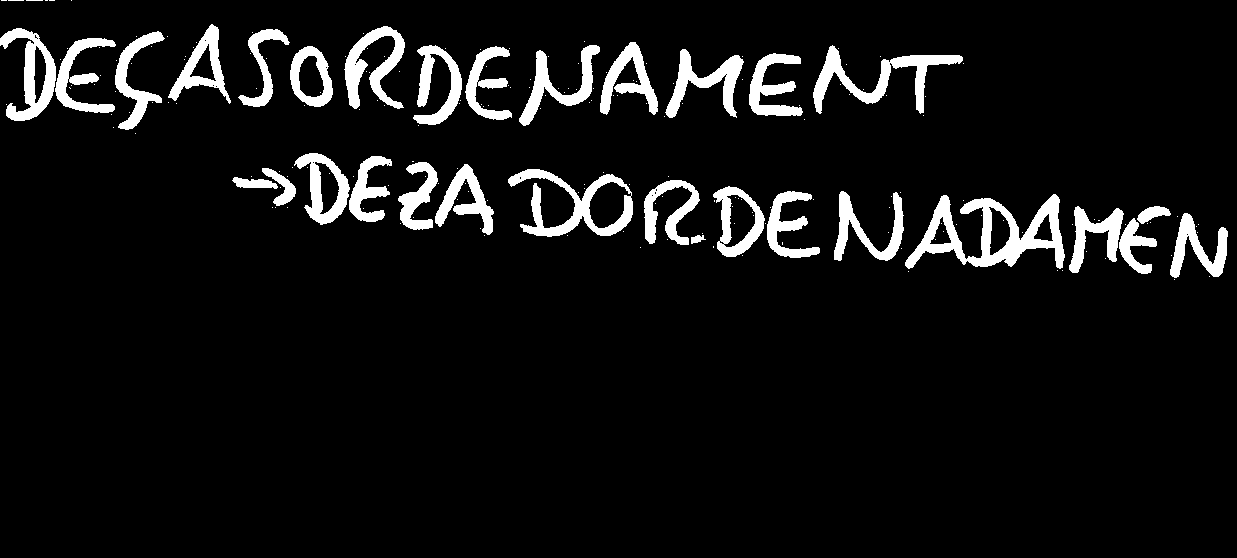 DEÇASORDENAMENT
→DEZADORDENADAMEN